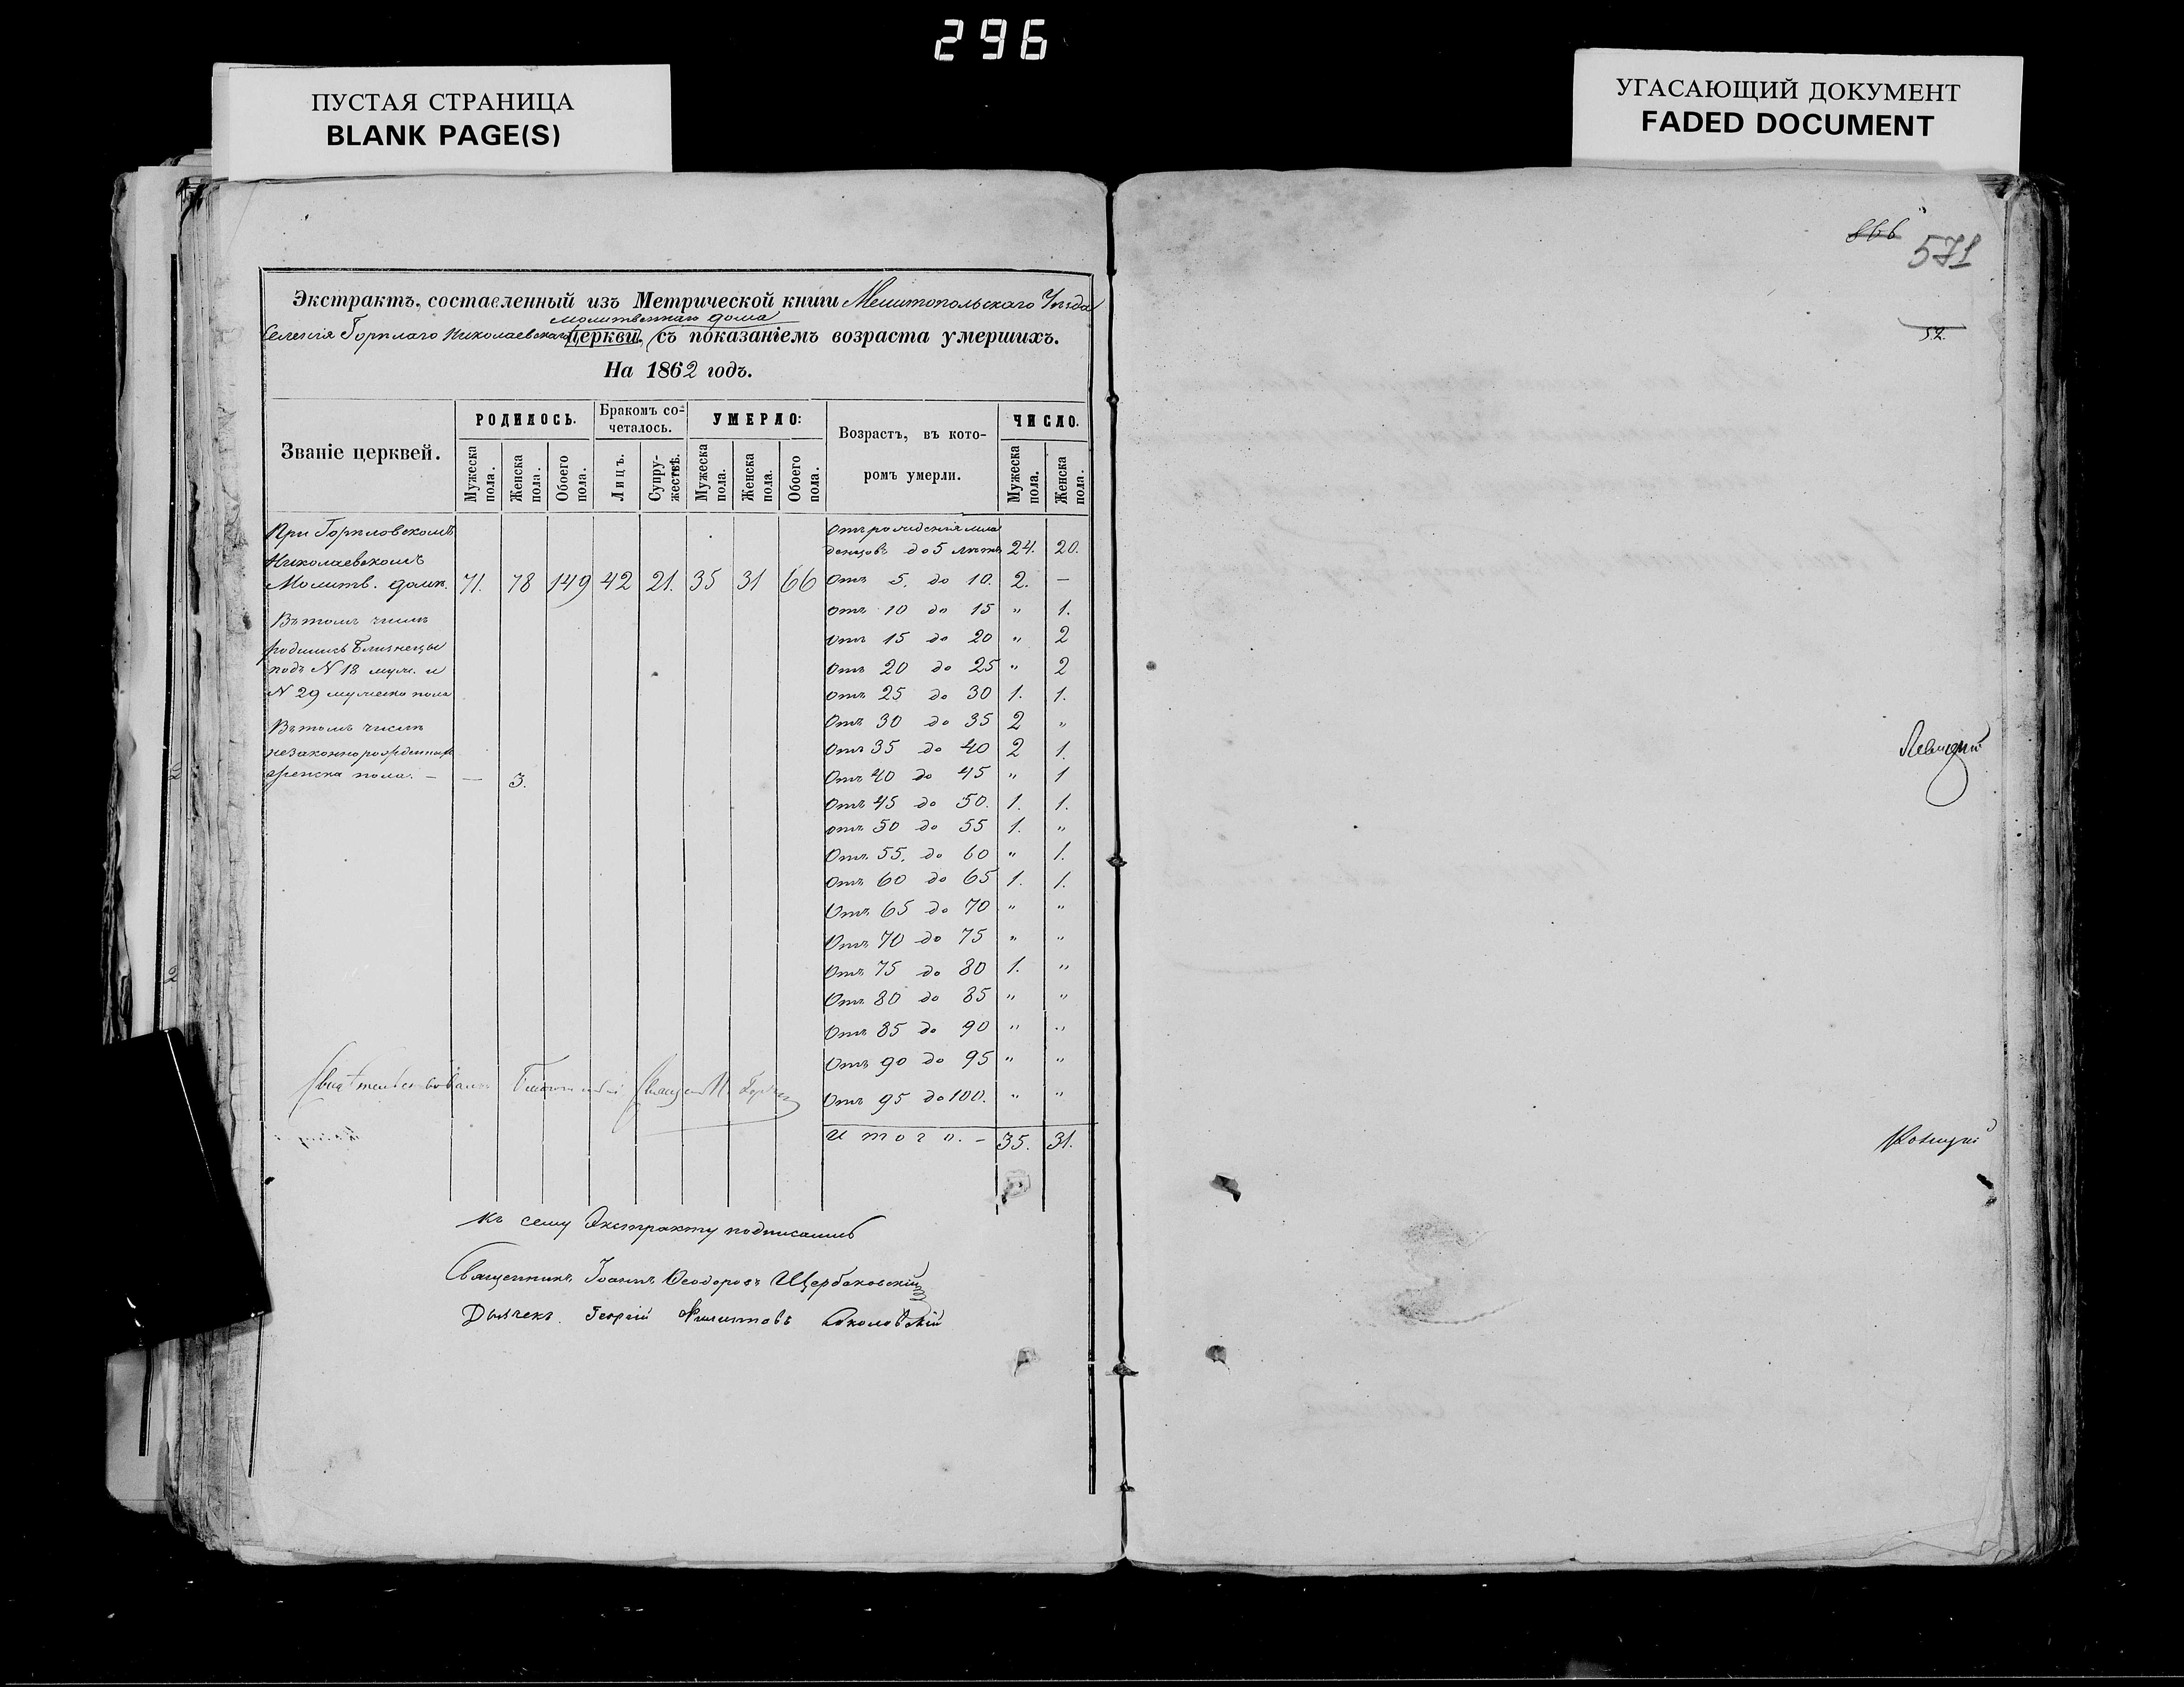 296
ПУСТАЯ СТРАНИЦА
BLANK PAGE(S)
УГАСАЮЩИЙ ДОКУМЕНТ
FADED DOCUMENT
Экстрактъ, составленный изъ Метрической книги Мелитопольскаго Уѣзда
молитвеннаго дома
Селенія Горѣлаго Николаевскаго церкви, съ показаніемъ возраста умершихъ.
На 1862 годъ.
Званіе церквей.
РОДИЛОСЬ.
Бракомъ со-
четалось.
УМЕРЛО:
Возрастъ, въ кото-
ромъ умерли.
ЧИСЛО.
Мужеска пола.
Женска пола.
Обоего пола.
Лицъ.
Супру-
жествъ.
Мужеска пола.
Женска пола.
Обоего пола.
Мужеска пола.
Женска пола.
При Горѣловскомъ
Николаевскомъ
Молитв. домѣ. 71. 78 149 42 21. 35 31 66
Въ томъ числѣ
родились близнецы
подъ N 18 муж. и
N 29 мужеска пола
Въ томъ числѣ
незаконнорожденныхъ
женска пола. — — 3.
Отъ рожденія мла
денцовъ до 5 лѣтъ 24. 20.
Отъ 5. до 10. 2. —
Отъ 10 до 15 " 1.
Отъ 15 до 20 " 2
Отъ 20 до 25 " 2
Отъ 25 до 30 1. 1.
Отъ 30 до 35 2 "
Отъ 35 до 40 2 1.
Отъ 40 до 45 " 1
Отъ 45 до 50. 1. 1.
Отъ 50 до 55 1. "
Отъ 55. до 60 " 1.
Отъ 60 до 65 1. 1.
Отъ 65 до 70 " "
Отъ 70 до 75 " "
Отъ 75 до 80 1. "
Отъ 80 до 85 " "
Отъ 85 до 90 " "
Отъ 90 до 95 " "
Отъ 95 до 100. " "
Итого. — 35. 31.
Свидѣтельствовалъ Благочинный Священ
Къ сему Экстракту подписались
Священникъ Іоаннъ Ѳеодоровъ Щербаковскій
Дьячекъ Георгій Филиповъ Соколовскій
866
571
52.